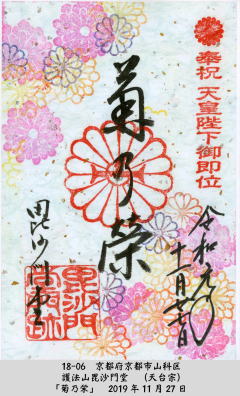 奉祝 天皇陛下御即位
菊乃榮
令和元年
十一月廿七日
毘沙門堂
毘沙門
18-06　京都府京都市山科区
護法山毘沙門堂　（天台宗）
「菊乃栄」　2019年11月27日